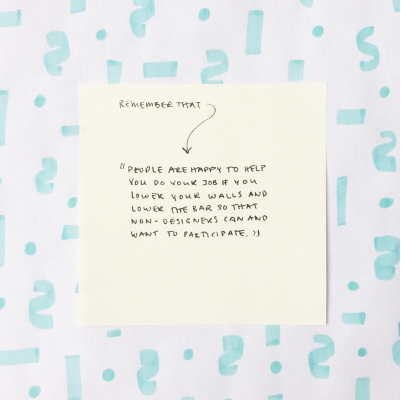 REMEMBER THAT
"PEOPLE ARE HAPPY TO HELP
YOU DO YOUR JOB IF YOU
LOWER YOUR WALLS AND
LOWER THE BAR SO THAT
NON-DESIGNERS CAN AND
WANT TO PARTICIPATE."